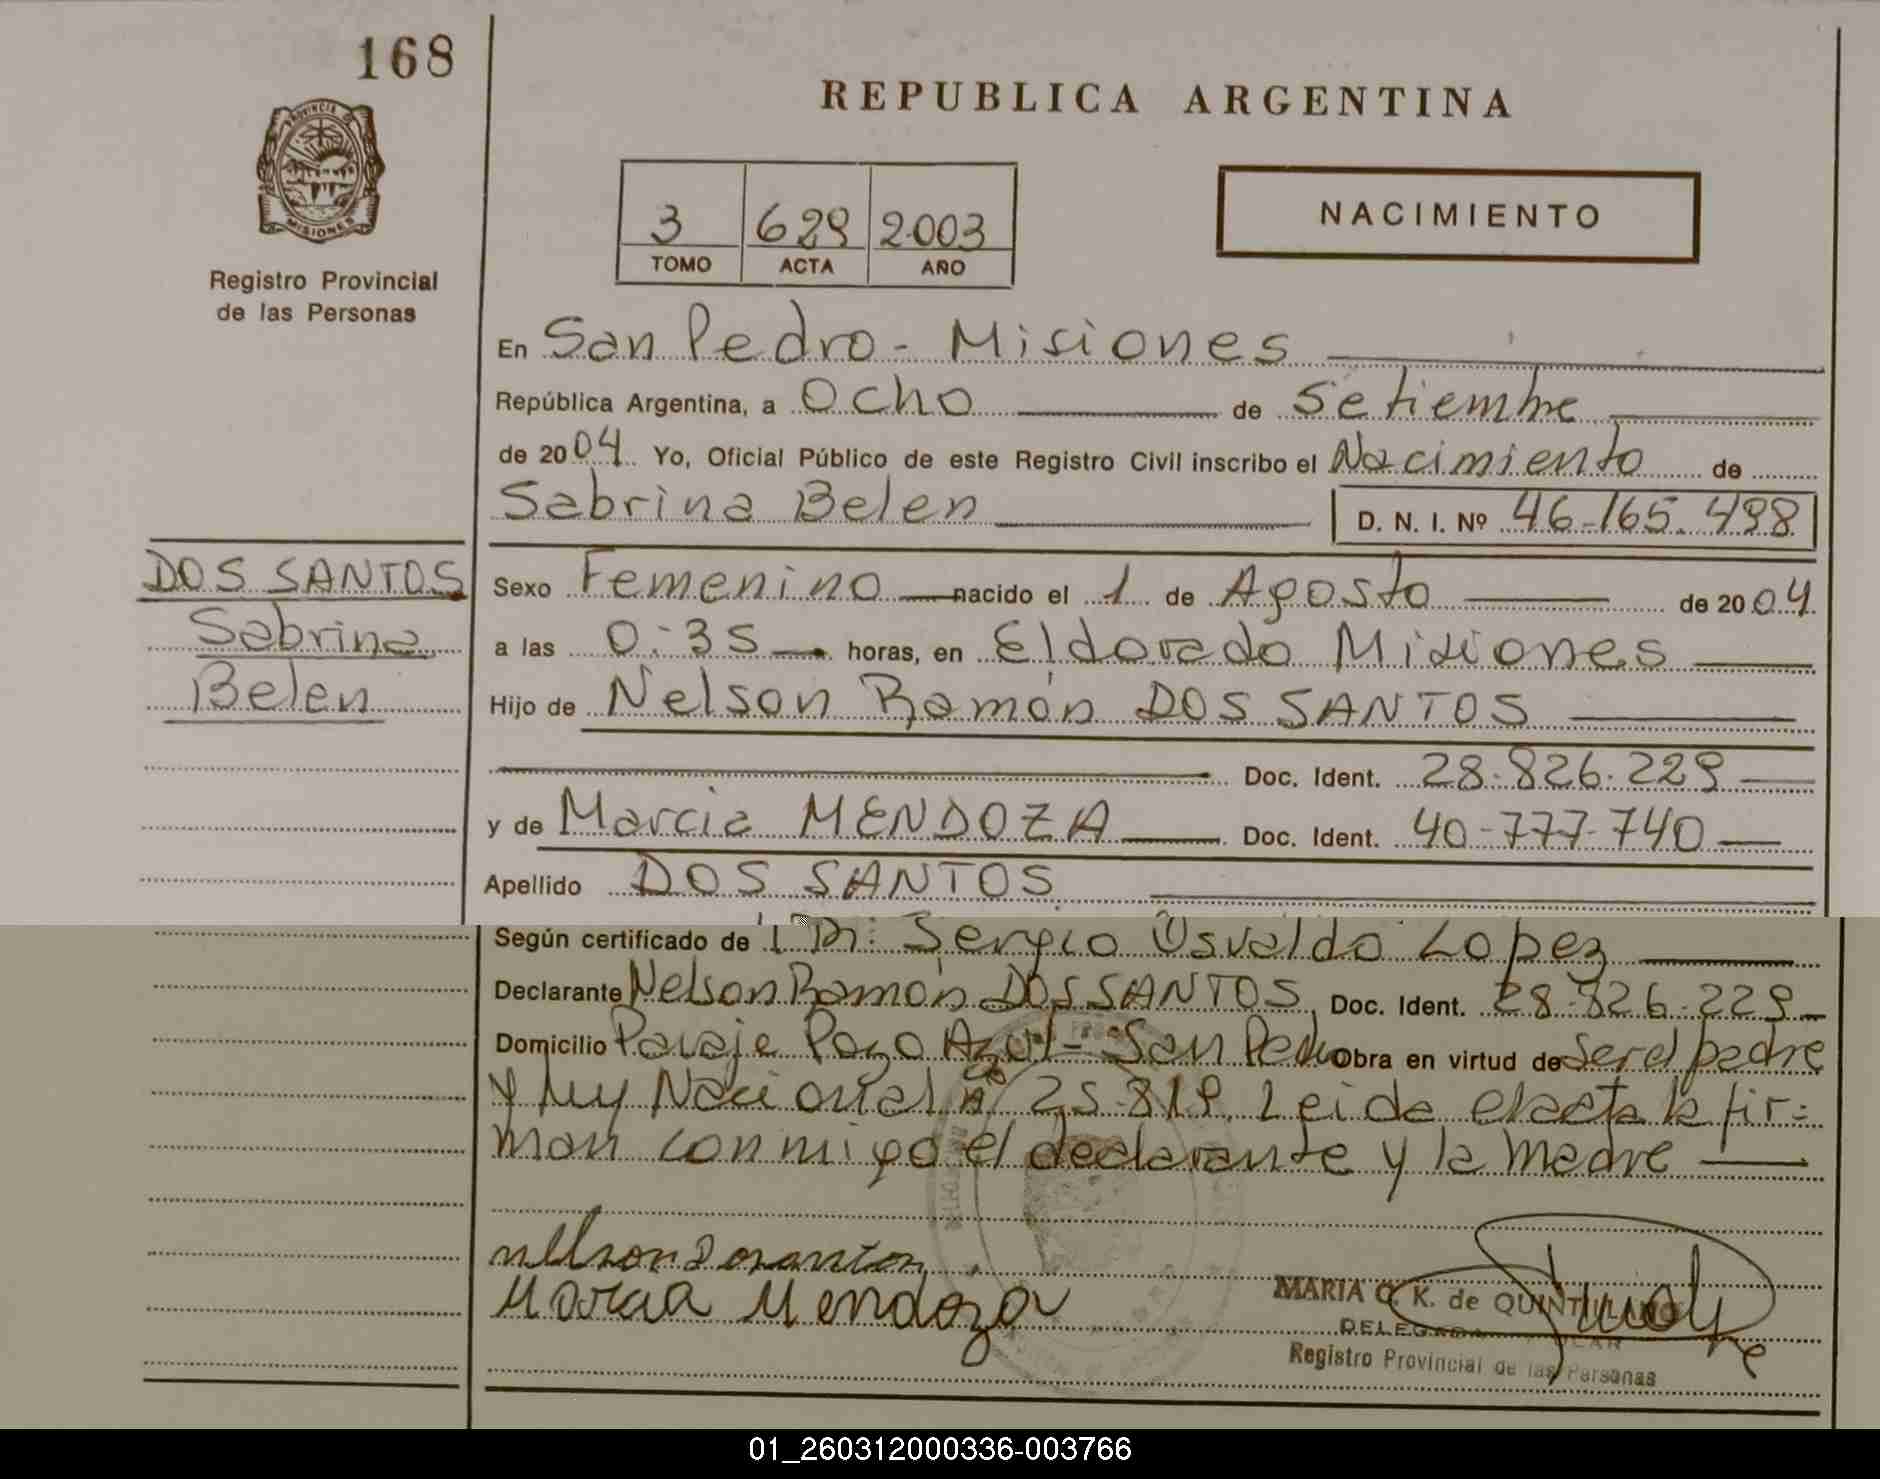 168
REPUBLICA ARGENTINA
PROVINCIA DE
MISIONES
Registro Provincial
de las Personas
3 629 2003
TOMO ACTA AÑO
NACIMIENTO
En San Pedro - Misiones
República Argentina, a Ocho de Setiembre
de 2004. Yo, Oficial Público de este Registro Civil inscribo el Nacimiento de
Sabrina Belen D. N. I. Nº 46-165.498
DOS SANTOS
Sabrina
Belen
Sexo Femenino nacido el 1 de Agosto de 2004.
a las 0:35 horas, en Eldorado Misiones
Hijo de Nelson Ramón DOS SANTOS
Doc. Ident. 28.826.229
y de Marcia MENDOZA Doc. Ident. 40-777-740
Apellido DOS SANTOS
Según certificado de Dr. Sergio Osvaldo Lopez
Declarante Nelson Ramón DOS SANTOS Doc. Ident. 28-826-229
Domicilio Paraje Pozo Azul - San Pedro Obra en virtud de Ser el padre
y Ley Nacional Nº 25.819. Leida el acta la fir=
man conmigo el declarante y la madre
nelson Dosantos
Marcia Mendoza
MARIA C. K. de QUINTULANO
DELEGADA
Registro Provincial de las Personas
01_260312000336-003766